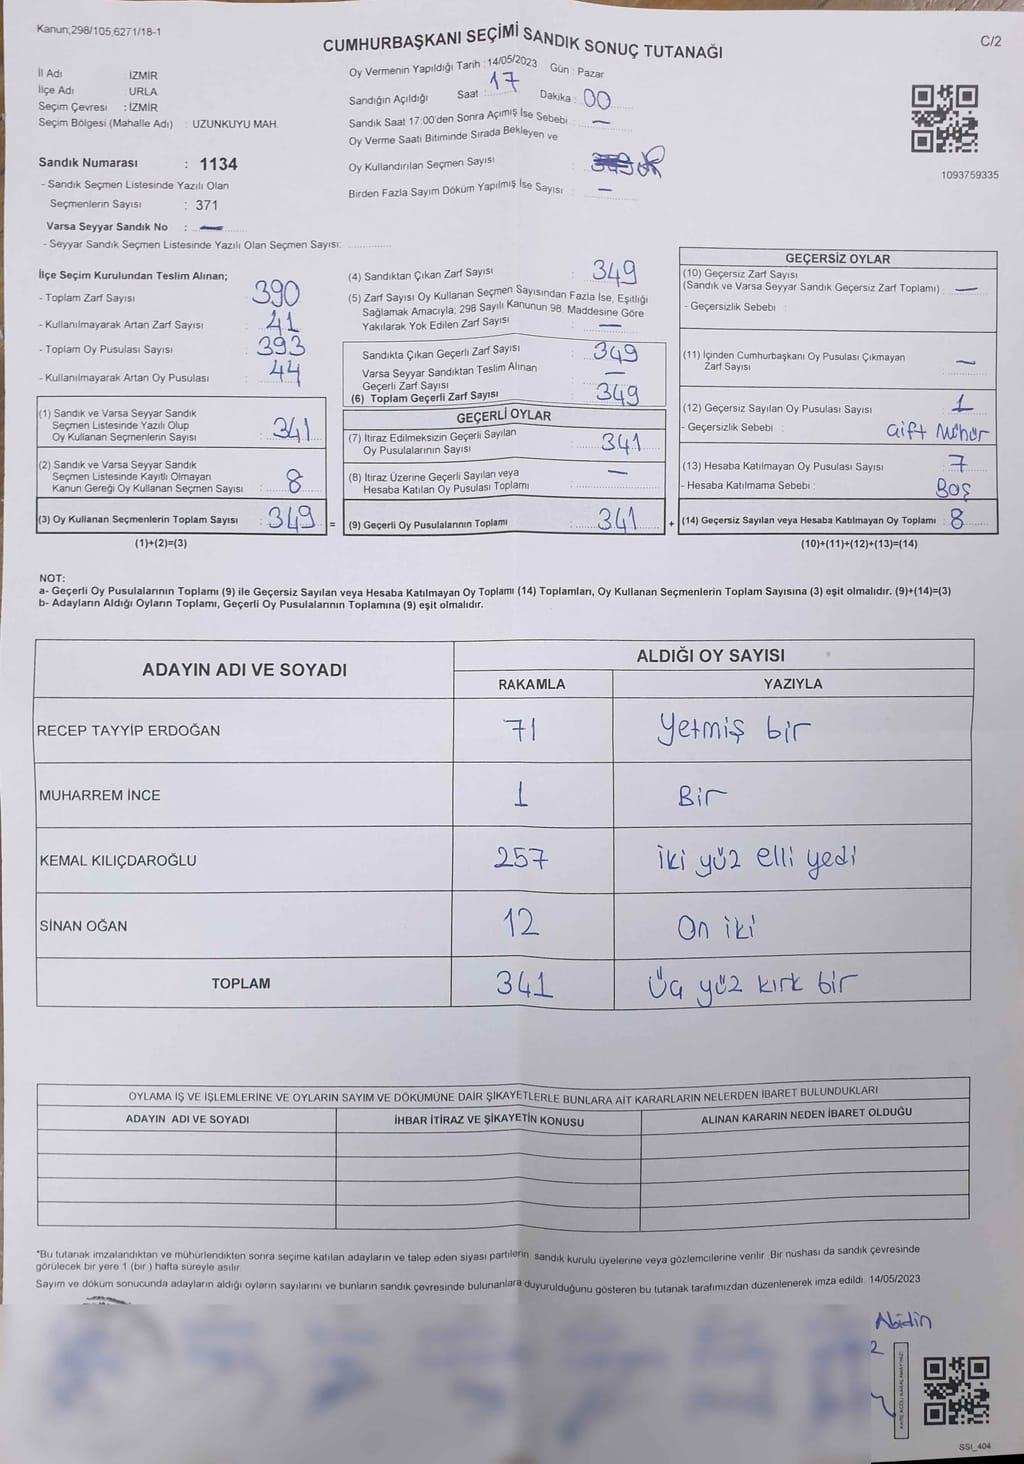 Kanun;298/105;6271/18-1
CUMHURBAŞKANI SEÇİMİ SANDIK SONUÇ TUTANAĞI
C/2
İl Adı : İZMİR
İlçe Adı : URLA
Seçim Çevresi : İZMİR
Seçim Bölgesi (Mahalle Adı) : UZUNKUYU MAH.
Sandık Numarası : 1134
- Sandık Seçmen Listesinde Yazılı Olan
Seçmenlerin Sayısı : 371
Varsa Seyyar Sandık No : —
- Seyyar Sandık Seçmen Listesinde Yazılı Olan Seçmen Sayısı:
Oy Vermenin Yapıldığı Tarih : 14/05/2023 Gün : Pazar
Sandığın Açıldığı Saat : 17 Dakika : 00
Sandık Saat 17:00'den Sonra Açımış İse Sebebi : —
Oy Verme Saati Bitiminde Sırada Bekleyen ve
Oy Kullandırılan Seçmen Sayısı :
Birden Fazla Sayım Döküm Yapılmış İse Sayısı : —
1093759335
İlçe Seçim Kurulundan Teslim Alınan;
- Toplam Zarf Sayısı : 390
- Kullanılmayarak Artan Zarf Sayısı : 41
- Toplam Oy Pusulası Sayısı : 393
- Kullanılmayarak Artan Oy Pusulası : 44
(1) Sandık ve Varsa Seyyar Sandık
Seçmen Listesinde Yazılı Olup
Oy Kullanan Seçmenlerin Sayısı : 341
(2) Sandık ve Varsa Seyyar Sandık
Seçmen Listesinde Kayıtlı Olmayan
Kanun Gereği Oy Kullanan Seçmen Sayısı : 8
(3) Oy Kullanan Seçmenlerin Toplam Sayısı : 349 =
(1)+(2)=(3)
(4) Sandıktan Çıkan Zarf Sayısı : 349
(5) Zarf Sayısı Oy Kullanan Seçmen Sayısından Fazla İse, Eşitliği
Sağlamak Amacıyla; 298 Sayılı Kanunun 98. Maddesine Göre
Yakılarak Yok Edilen Zarf Sayısı : —
Sandıkta Çıkan Geçerli Zarf Sayısı : 349
Varsa Seyyar Sandıktan Teslim Alınan
Geçerli Zarf Sayısı : —
(6) Toplam Geçerli Zarf Sayısı : 349
GEÇERLİ OYLAR
(7) İtiraz Edilmeksizin Geçerli Sayılan
Oy Pusulalarının Sayısı : 341
(8) İtiraz Üzerine Geçerli Sayılan veya
Hesaba Katılan Oy Pusulası Toplamı : —
(9) Geçerli Oy Pusulalarının Toplamı : 341 +
GEÇERSİZ OYLAR
(10) Geçersiz Zarf Sayısı
(Sandık ve Varsa Seyyar Sandık Geçersiz Zarf Toplamı) : —
- Geçersizlik Sebebi :
(11) İçinden Cumhurbaşkanı Oy Pusulası Çıkmayan
Zarf Sayısı : —
(12) Geçersiz Sayılan Oy Pusulası Sayısı : 1
- Geçersizlik Sebebi : Çift Mühür
(13) Hesaba Katılmayan Oy Pusulası Sayısı : 7
- Hesaba Katılmama Sebebi : Boş
(14) Geçersiz Sayılan veya Hesaba Katılmayan Oy Toplamı : 8
(10)+(11)+(12)+(13)=(14)
NOT:
a- Geçerli Oy Pusulalarının Toplamı (9) ile Geçersiz Sayılan veya Hesaba Katılmayan Oy Toplamı (14) Toplamları, Oy Kullanan Seçmenlerin Toplam Sayısına (3) eşit olmalıdır. (9)+(14)=(3)
b- Adayların Aldığı Oyların Toplamı, Geçerli Oy Pusulalarının Toplamına (9) eşit olmalıdır.
ADAYIN ADI VE SOYADI
ALDIĞI OY SAYISI
RAKAMLA YAZIYLA
RECEP TAYYİP ERDOĞAN 71 Yetmiş bir
MUHARREM İNCE 1 Bir
KEMAL KILIÇDAROĞLU 257 İki yüz elli yedi
SİNAN OĞAN 12 On iki
TOPLAM 341 Üç yüz kırk bir
OYLAMA İŞ VE İŞLEMLERİNE VE OYLARIN SAYIM VE DÖKÜMÜNE DAİR ŞİKAYETLERLE BUNLARA AİT KARARLARIN NELERDEN İBARET BULUNDUKLARI
ADAYIN ADI VE SOYADI İHBAR İTİRAZ VE ŞİKAYETİN KONUSU ALINAN KARARIN NEDEN İBARET OLDUĞU
*Bu tutanak imzalandıktan ve mühürlendikten sonra seçime katılan adayların ve talep eden siyasi partilerin sandık kurulu üyelerine veya gözlemcilerine verilir. Bir nüshası da sandık çevresinde
görülecek bir yere 1 (bir ) hafta süreyle asılır.
Sayım ve döküm sonucunda adayların aldığı oyların sayılarını ve bunların sandık çevresinde bulunanlara duyurulduğunu gösteren bu tutanak tarafımızdan düzenlenerek imza edildi. 14/05/2023
Abidin
2
KARE KODU KARALAMAYINIZ!
SSI_404